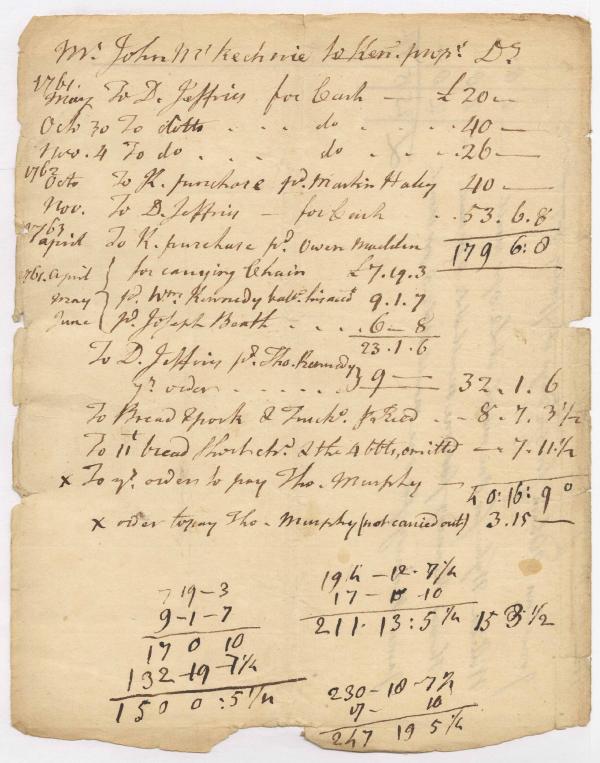 Mr. John McKechnie to Ken. propr. Dr.
1761
May To D. Jeffries for Cash — £20 —
Octo 30 To ditto . . . do . . . 40 —
Nov. 4 To do . . . do . . . 26 —
1762
Octo To K. purchase pd. Martin Haley 40 —
Nov. To D. Jeffries — for Cash . . 53. 6. 8
1763
april To K. purchase pd. Owen Madden 179 6: 8
1761. April for carrying Chain £7.19.3
May pd. Wm. Kennedy 9.1.7
June pd. Joseph Beath . . . 6 — 8
23.1.6
To D. Jeffries pd. Tho. Kennedy
yr. order . . . . . 9 — 32. 1. 6
To Bread & pork & . . 8. 7. 3½
To bread & the 4 omitted — 7. 11½
x To yr. orders to pay Tho. Murphy —
40: 16: 9 0
x order to pay Tho. Murphy (not carried out) 3.15 —
7 19 — 3
9 — 1 — 7
17 0 10
132 — 19 — 7½
150 0 : 5½
194 — 12. 7½
17 — 10
211. 13: 5½ 15 3½
230 — 18 — 7½
17 — 10
247 19 5½